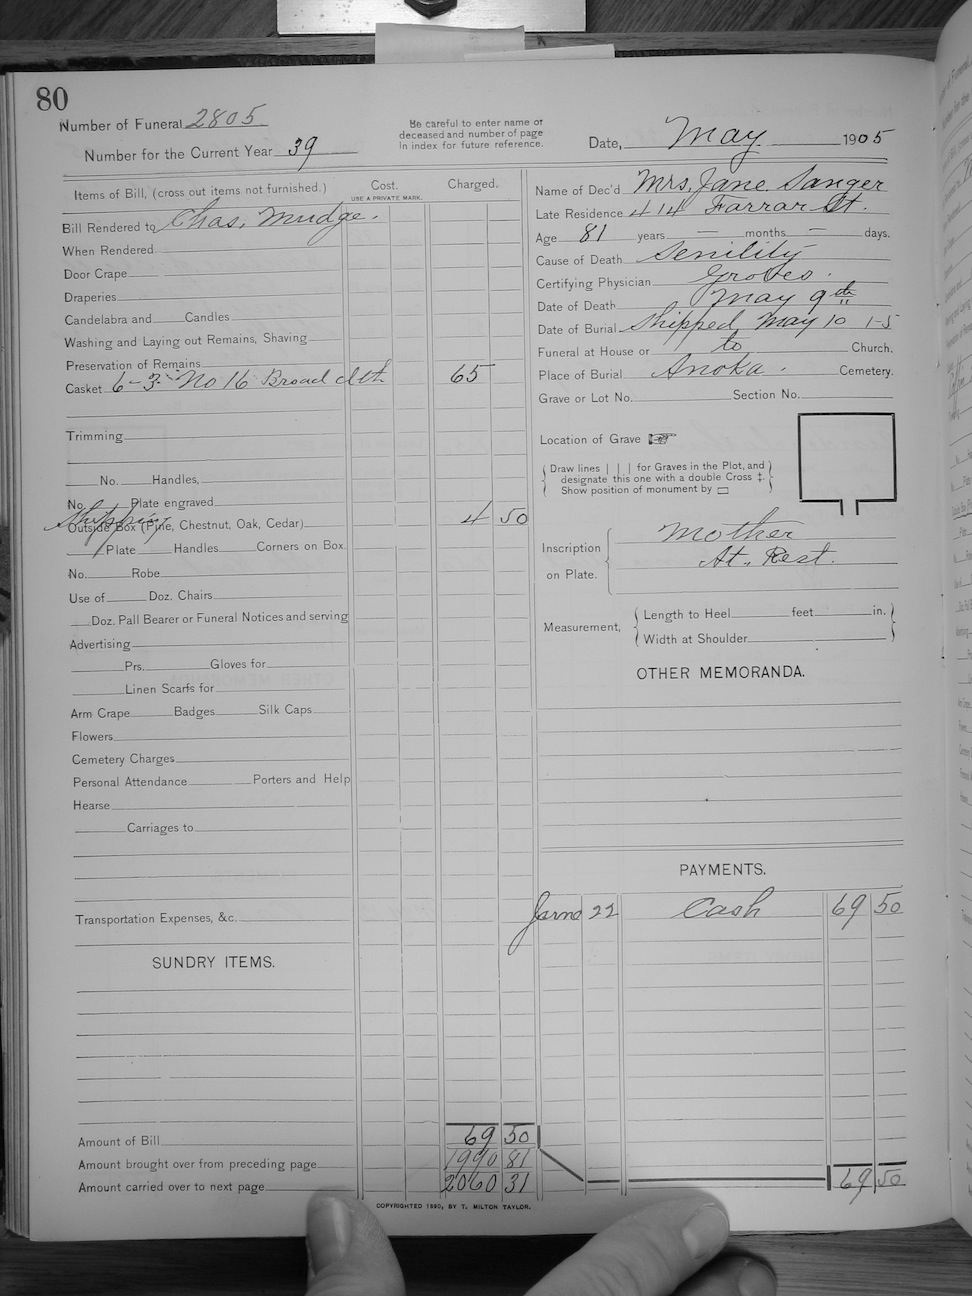 80
Number of Funeral 2805
Number for the Current Year 39
Be careful to enter name of
deceased and number of page
in index for future reference.
Date, May 1905
Items of Bill, (cross out items not furnished.) Cost. Charged.
USE A PRIVATE MARK.
Bill Rendered to Chas. Mudge.
When Rendered
Door Crape
Draperies
Candelabra and Candles
Washing and Laying out Remains, Shaving
Preservation of Remains
Casket 6-3 No 16 Broad clth 65
Trimming
No. Handles,
No. Plate engraved
Shipping
Outside Box (Pine, Chestnut, Oak, Cedar) 4 50
Plate Handles Corners on Box
No. Robe
Use of Doz. Chairs
Doz. Pall Bearer or Funeral Notices and serving
Advertising
Prs. Gloves for
Linen Scarfs for
Arm Crape Badges Silk Caps
Flowers
Cemetery Charges
Personal Attendance Porters and Help
Hearse
Carriages to
Transportation Expenses, &c.
SUNDRY ITEMS.
Amount of Bill 69 50
Amount brought over from preceding page 1990 81
Amount carried over to next page 2060 31
Name of Dec'd Mrs. Jane Sanger
Late Residence 414 Farrar St.
Age 81 years — months — days.
Cause of Death Senility
Certifying Physician Groves.
Date of Death May 9th
Date of Burial Shipped May 10 1-5
Funeral at House or to Church.
Place of Burial Anoka. Cemetery.
Grave or Lot No. Section No.
Location of Grave ☞
Draw lines | | | for Graves in the Plot, and
designate this one with a double Cross ‡.
Show position of monument by ▭
Inscription
on Plate.
Mother
At. Rest.
Measurement, Length to Heel feet in.
Width at Shoulder
OTHER MEMORANDA.
PAYMENTS.
June 22 Cash 69 50
69 50
COPYRIGHTED 1890, BY T. MILTON TAYLOR.